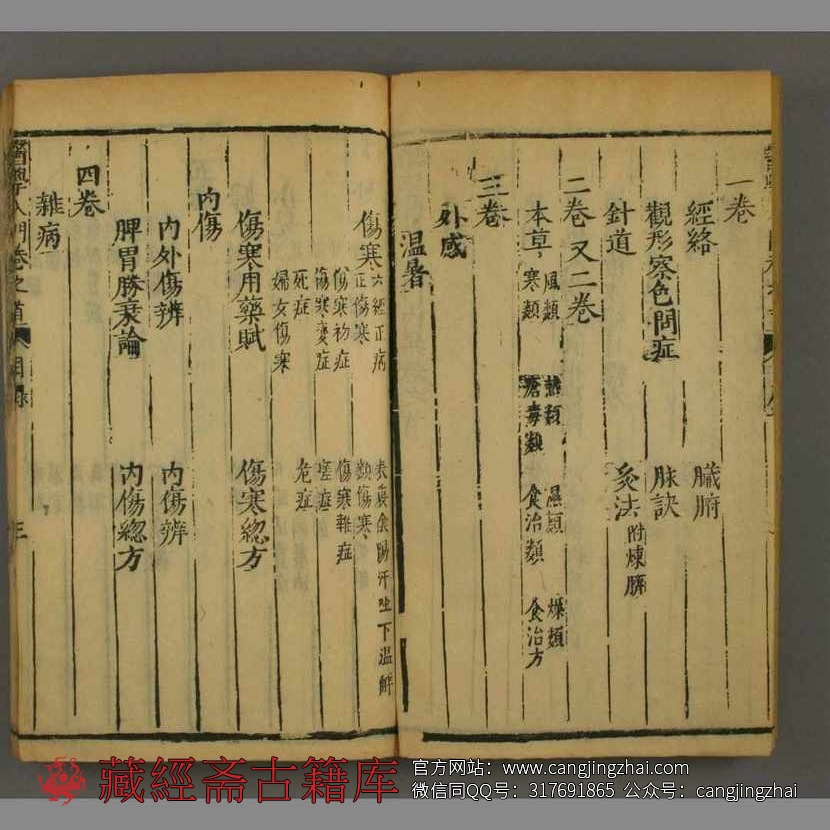 一卷
經絡 臟腑
觀形察色問症 脉訣
針道 灸法附煉臍
二卷又二卷
本草 風類 熱類 濕類 燥類
寒類 瘡毒類 食治類 食治方
三卷
外感
温暑
傷寒 六經正病 表裏陰陽汗吐下温解
正傷寒 類傷寒
傷寒初症 傷寒雜症
傷寒變症 瘥症
死症 危症
婦女傷寒
傷寒用藥賦 傷寒總方
内傷
内外傷辨 内傷辨
脾胃勝衰論 内傷總方
四卷
雜病
醫學入門卷之首 目錄 三
藏經斋古籍库
官方网站：www.cangjingzhai.com
微信同QQ号：317691865 公众号：cangjingzhai